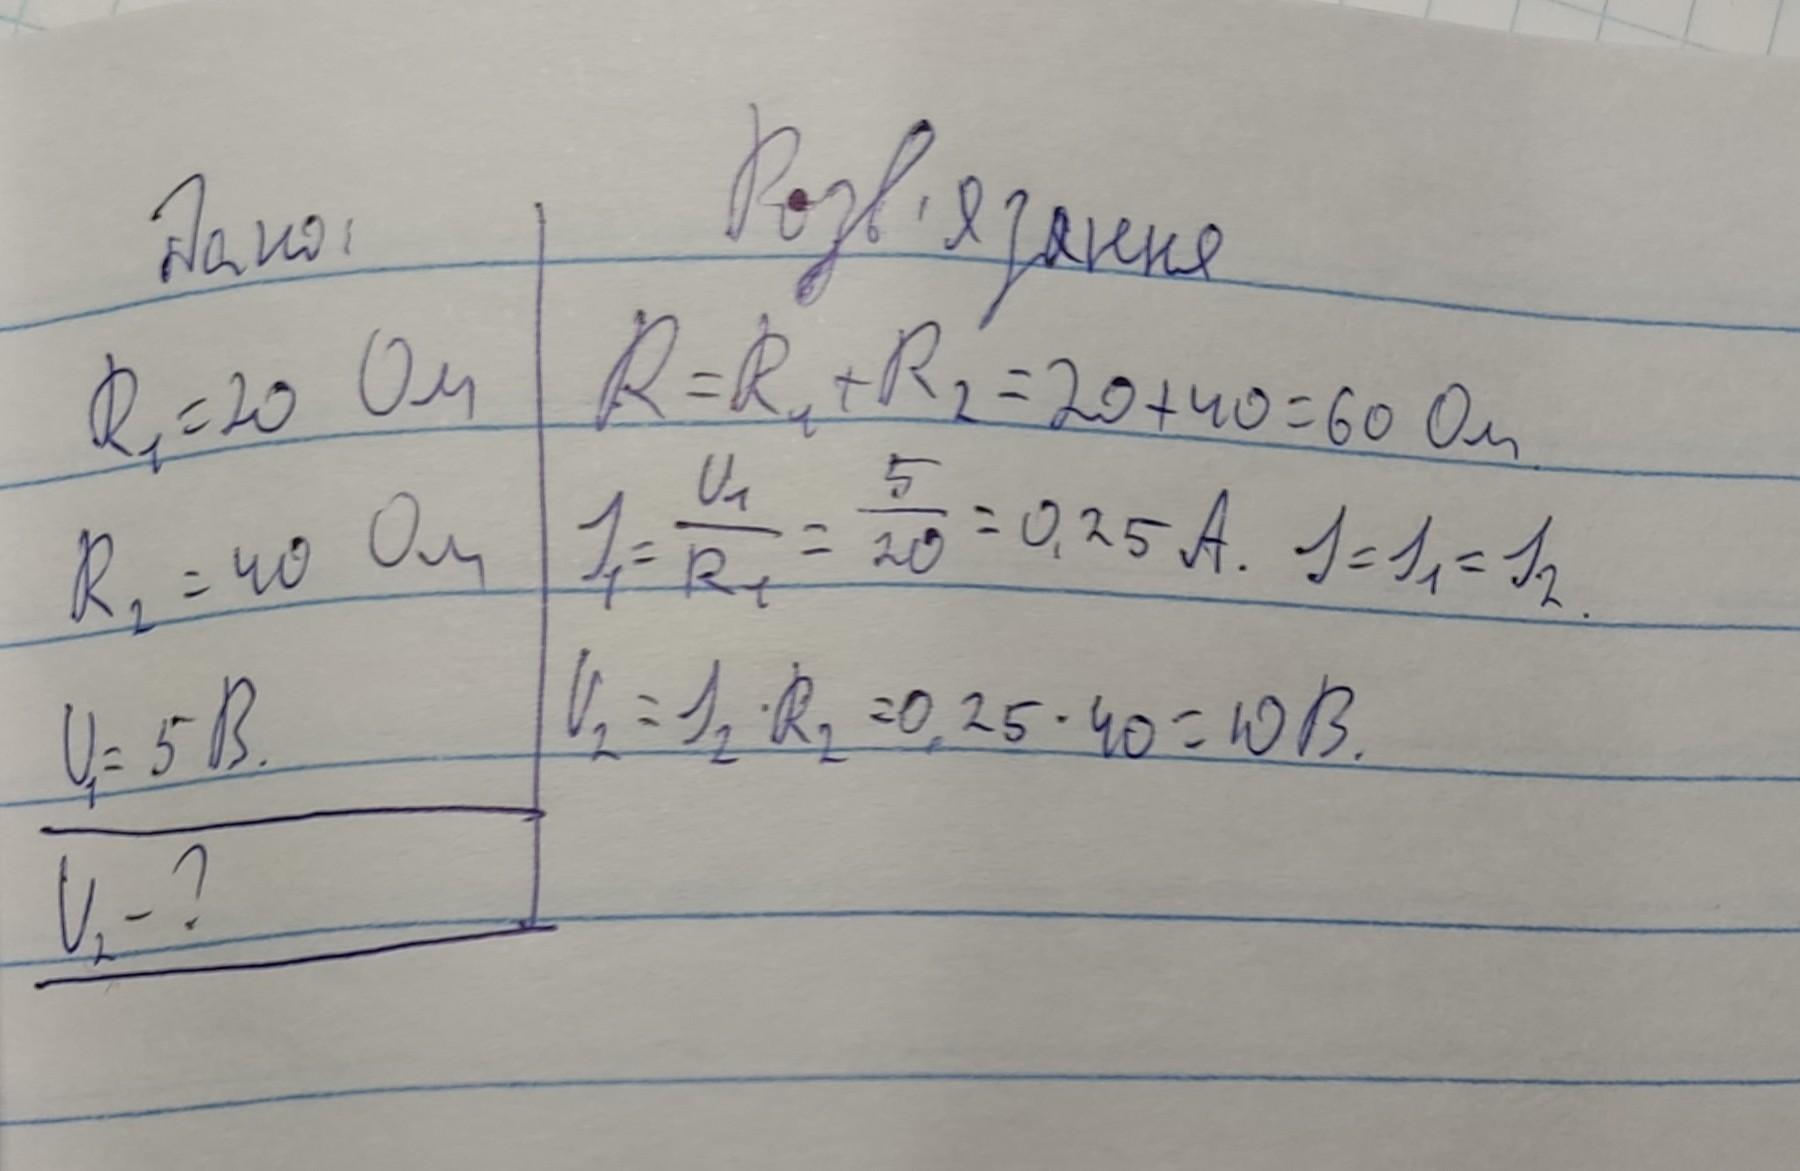 Дано:
R₁=20 Ом
R₂=40 Ом
U₁=5 В.
U₂-?
Розв'язання
R=R₁+R₂=20+40=60 Ом
I₁=U₁/R₁=5/20=0,25 А. I=I₁=I₂.
U₂=I₂·R₂=0,25·40=10 В.